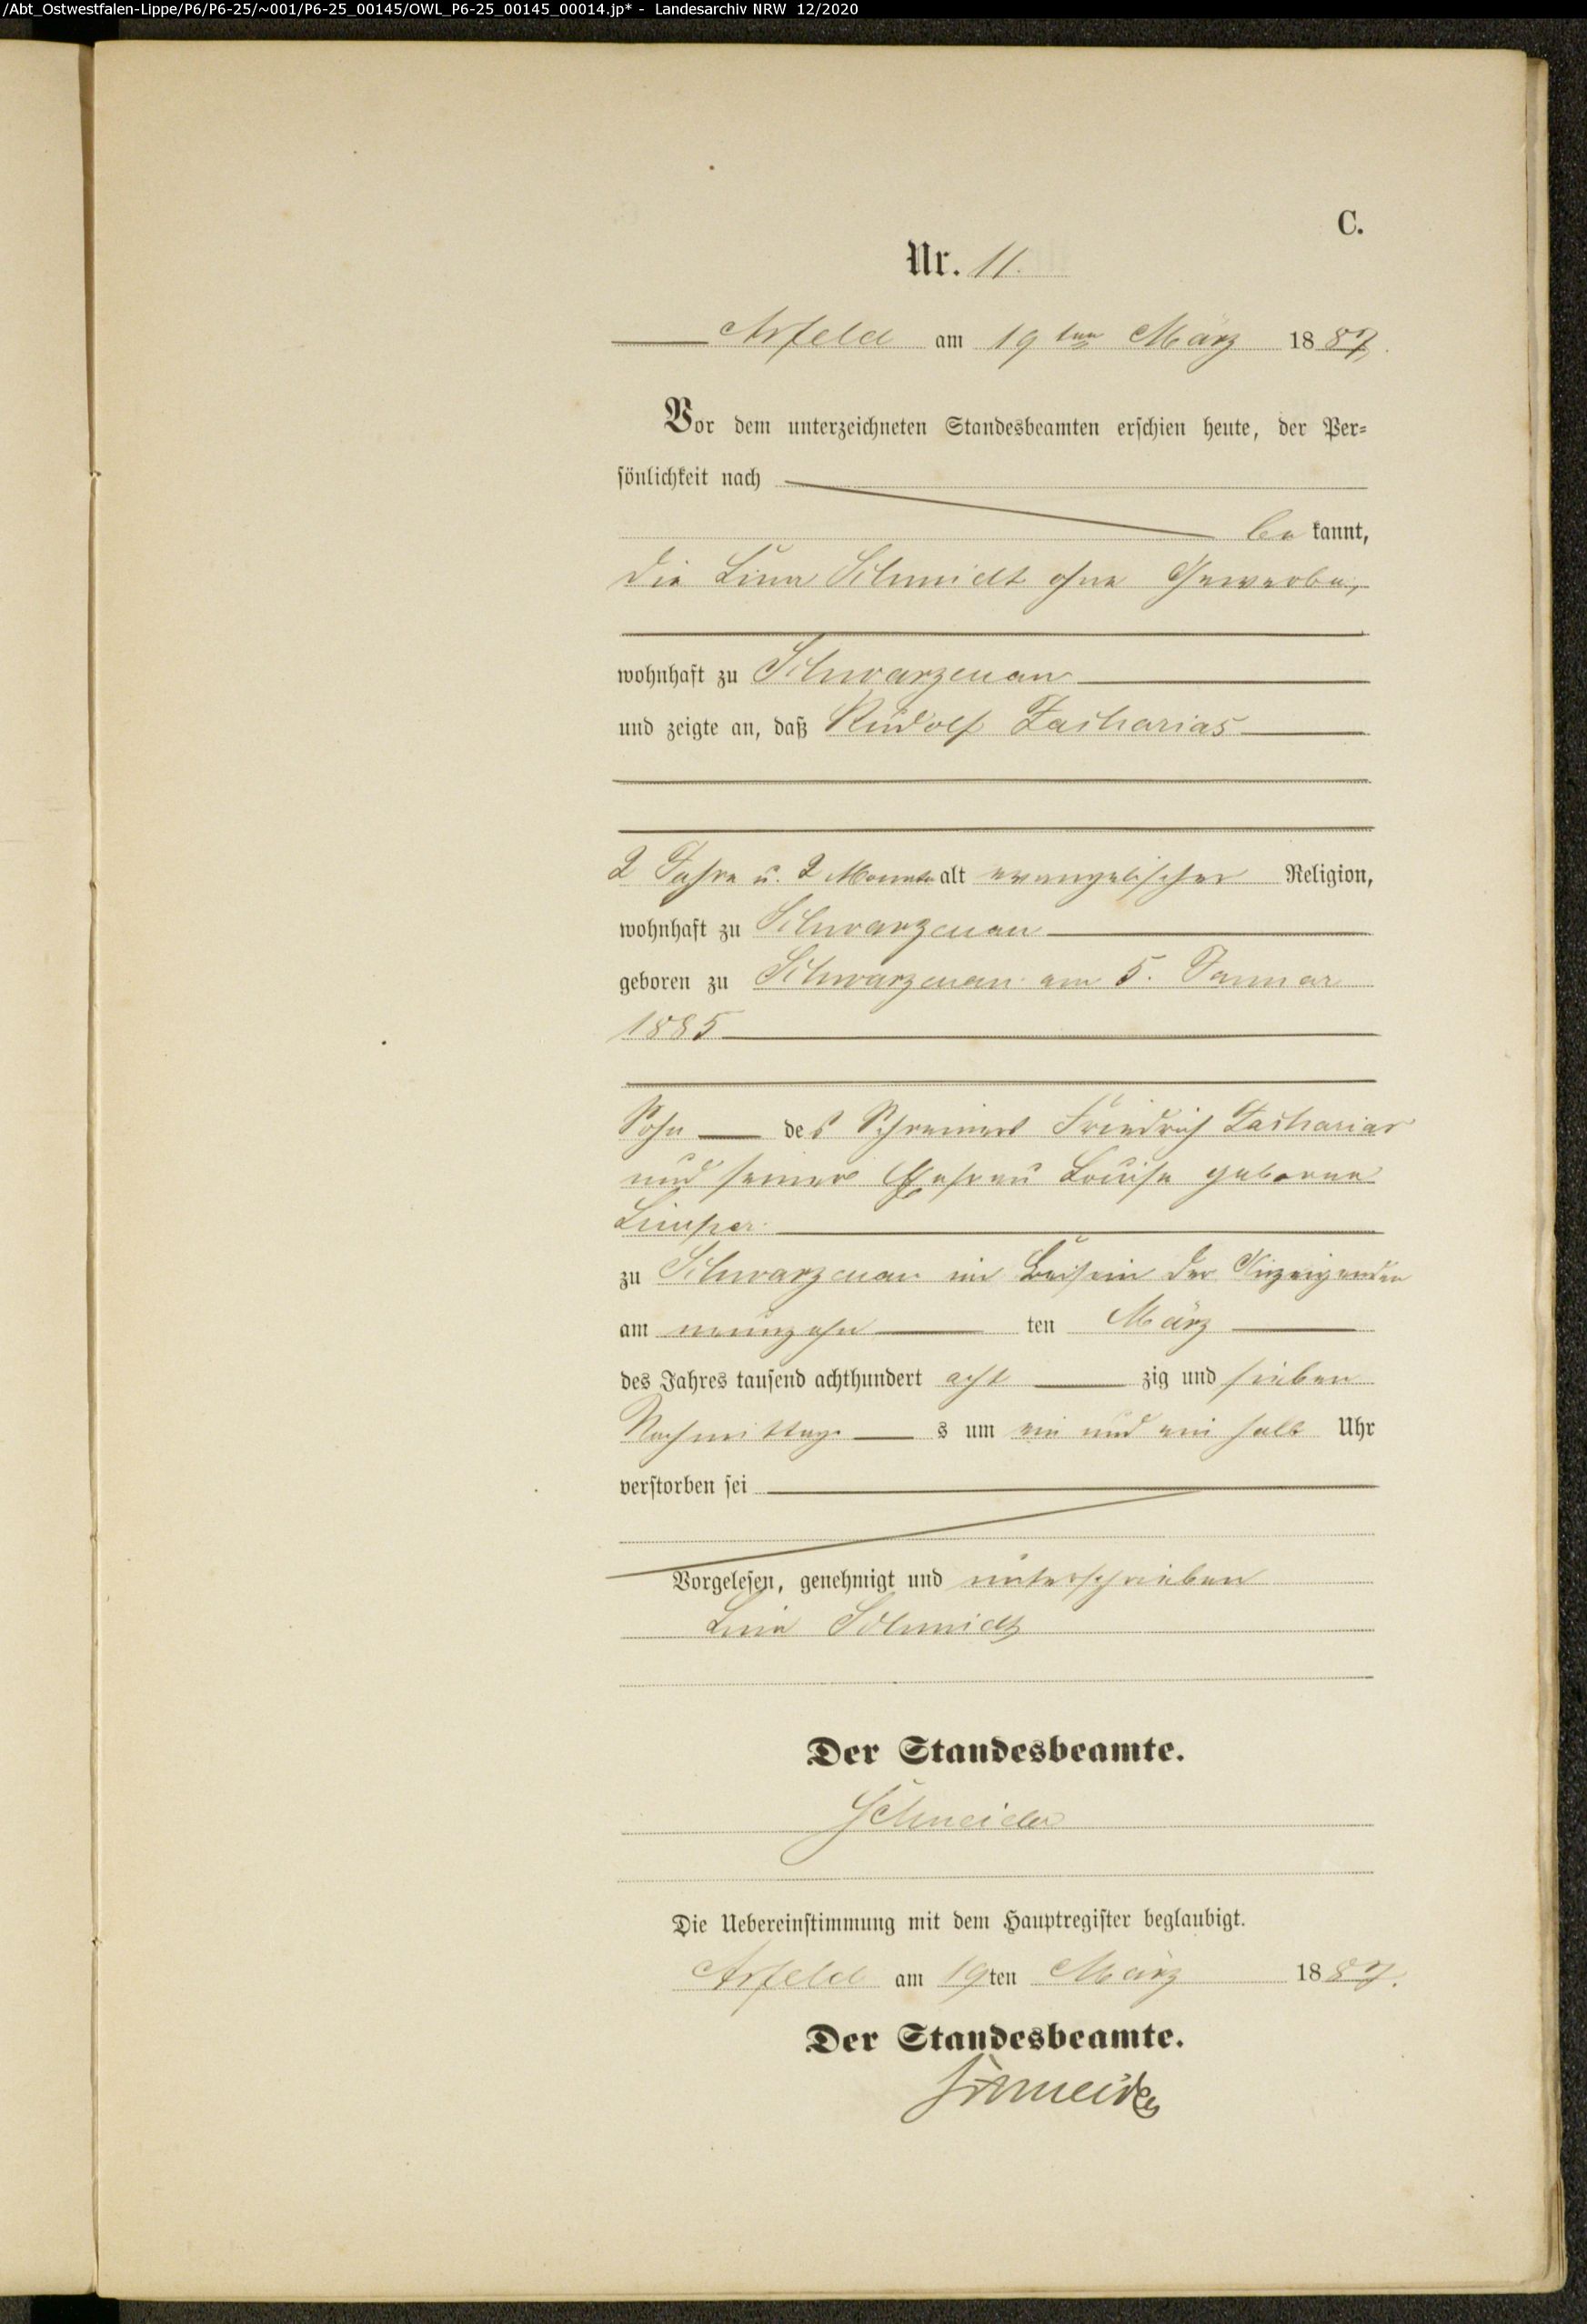 /Abt_Ostwestfalen-Lippe/P6/P6-25/~001/P6-25_00145/OWL_P6-25_00145_00014.jp* - Landesarchiv NRW 12/2020
C.
Nr. 11.
Arfeld am 19ten März 1887.
Vor dem unterzeichneten Standesbeamten erschien heute, der Per-
sönlichkeit nach
bekannt,
die Lina Schmidt ohne Gewerbe,
wohnhaft zu Schwarzenau
und zeigte an, daß Rudolf Zacharias
2 Jahre u. 2 Monate alt evangelischer Religion,
wohnhaft zu Schwarzenau
geboren zu Schwarzenau am 5. Januar
1885
Sohn des Schreiners Friedrich Zacharias
und seiner Ehefrau Louise geborene
Limper
zu Schwarzenau im Beisein der Anzeigenden
am neunzehnten März
des Jahres tausend achthundert achtzig und sieben
Nachmittags um ein und ein halb Uhr
verstorben sei
Vorgelesen, genehmigt und unterschrieben
Lina Schmidt
Der Standesbeamte.
Schneider
Die Uebereinstimmung mit dem Hauptregister beglaubigt.
Arfeld am 19ten März 1887.
Der Standesbeamte.
Schneider